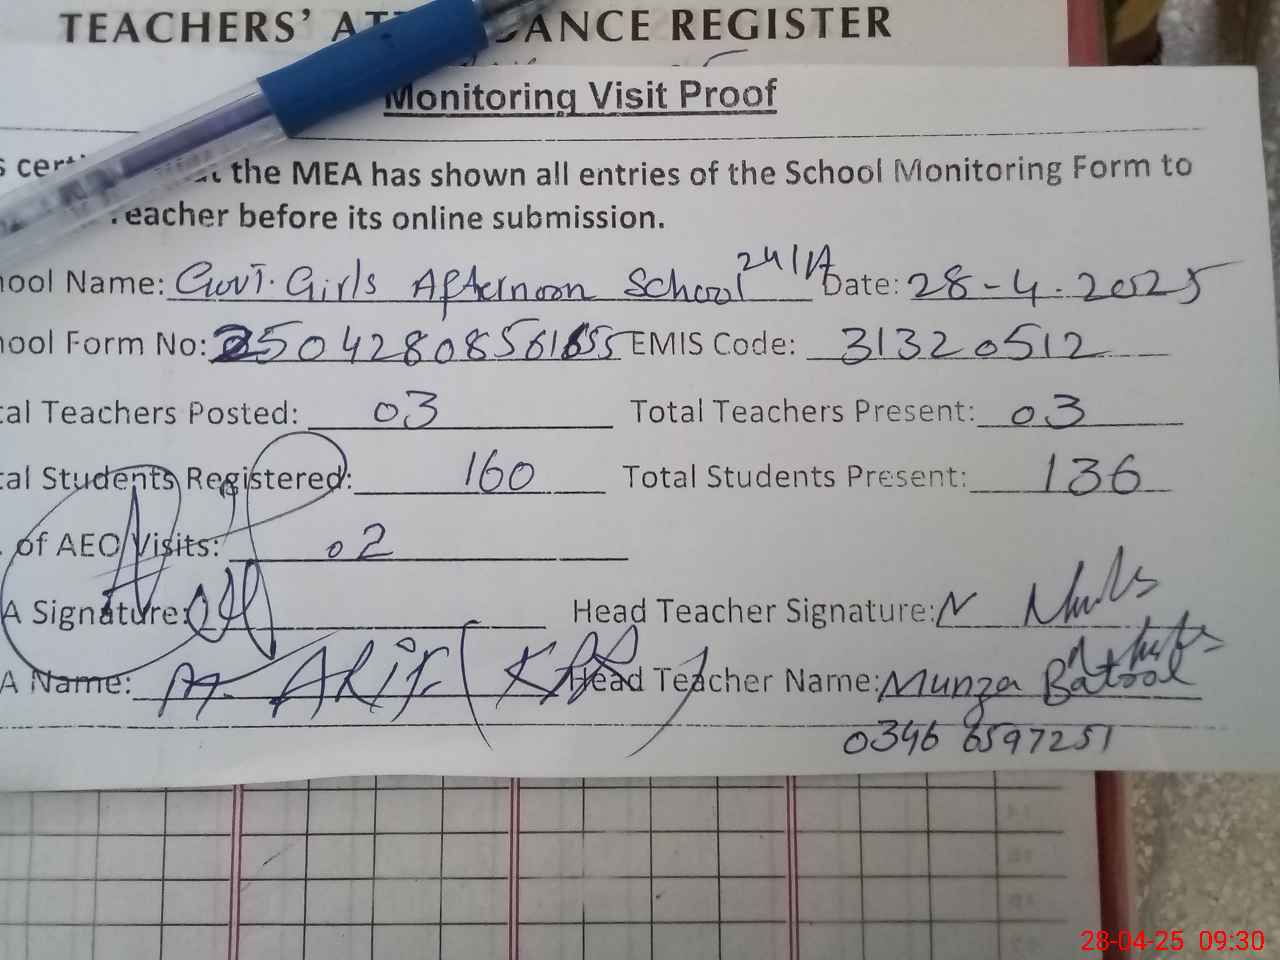 TEACHERS' AT DANCE REGISTER
Monitoring Visit Proof
the MEA has shown all entries of the School Monitoring Form to
eacher before its online submission.
hool Name: Govt. Girls Afternoon School 24/A Date: 28-4.2025
hool Form No: 25042808561655 EMIS Code: 31320512
tal Teachers Posted: 03 Total Teachers Present: 03
tal Students Registered: 160 Total Students Present: 136
of AEO Visits: 02
A Signature: Head Teacher Signature:
A Name: M. ARIF (KPR) Head Teacher Name: Munza Batool
0346 6597251
28-04-25 09:30